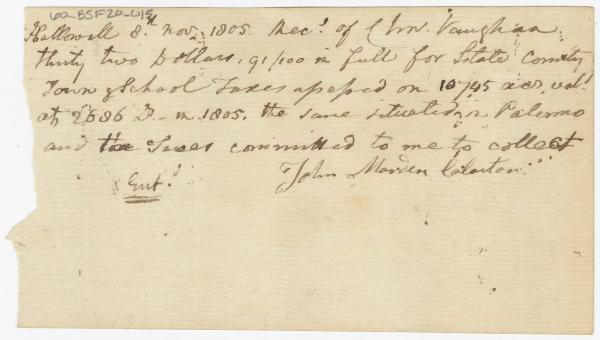 60-BSF20-U15
Hallowell 8th Nov. 1805. Rec'd of Chs. Vaughan
thirty two Dollars, 91/100 in full for State County
Town & School Taxes assessed on 10745 acs. val'd
at 2686 D. in 1805. the same situated in Palermo
and the Taxes committed to me to collect
Ent'd John Marden Collector